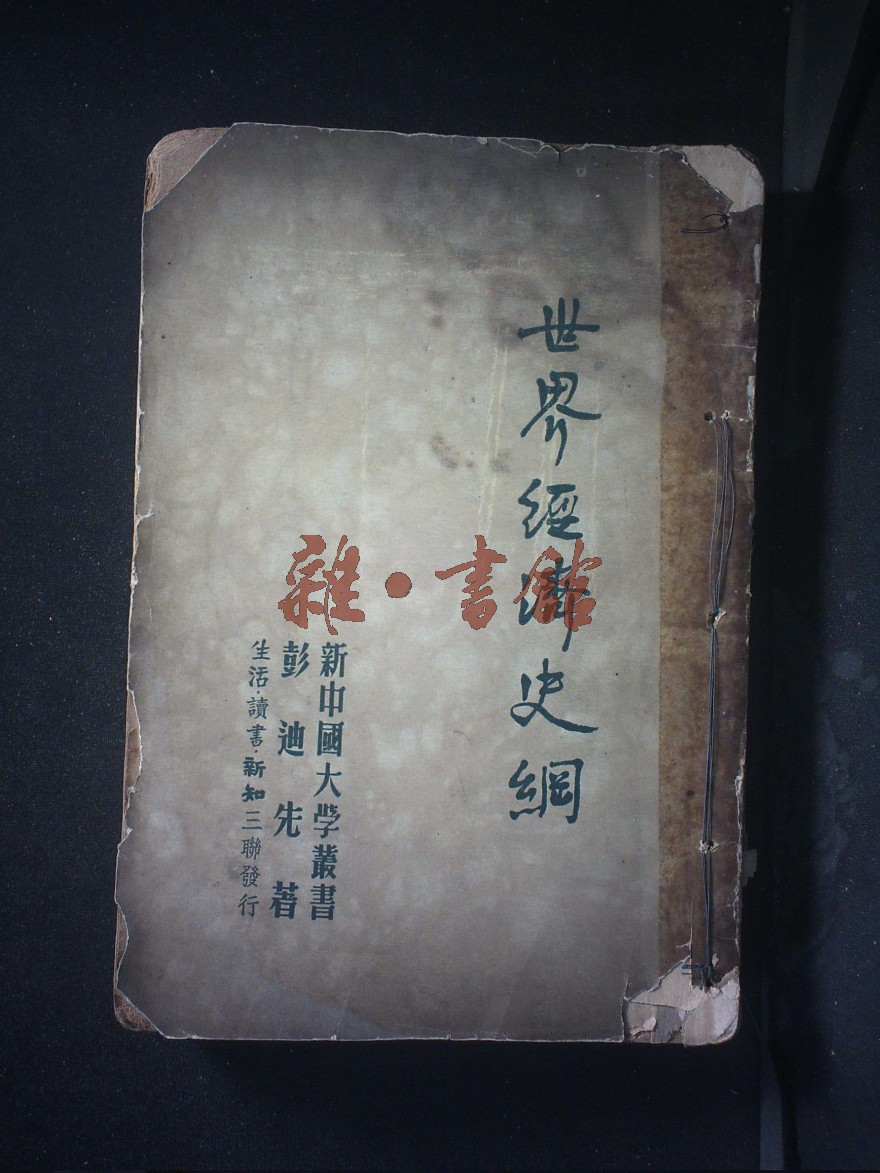 世界經濟史綱
新中國大学叢書
彭迪先著
生活·讀書·新知三聯發行
雜·書館